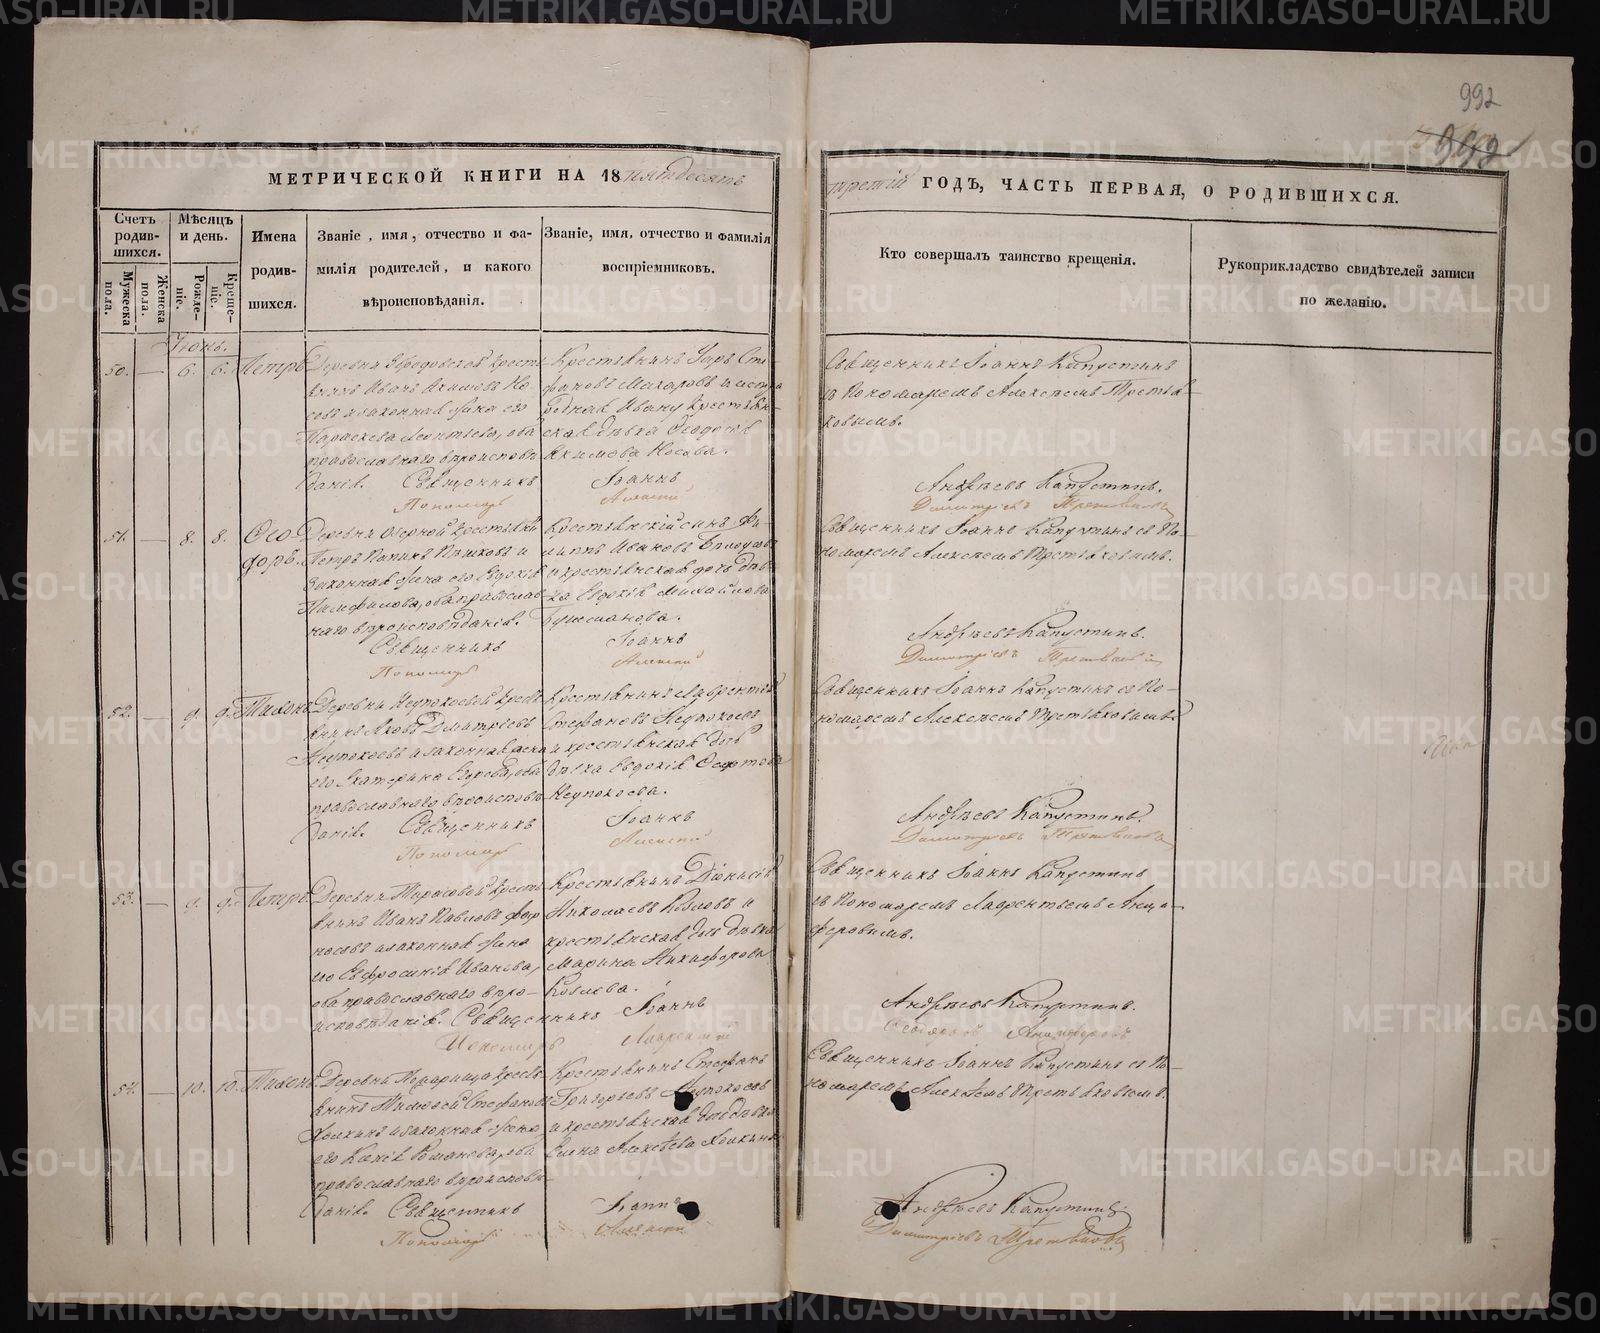 992
МЕТРИЧЕСКОЙ КНИГИ НА 18 пятьдесятъ
третій ГОДЪ, ЧАСТЬ ПЕРВАЯ, О РОДИВШИХСЯ.
Счетъ родив-шихся.
Мужеска пола.
Женска пола.
Мѣсяцъ и день.
Рожде-ніе.
Креще-ніе.
Имена
родив-
шихся.
Званіе, имя, отчество и фа-
милія родителей, и какого
вѣроисповѣданія.
Званіе, имя, отчество и фамилія
воспріемниковъ.
Кто совершалъ таинство крещенія.
Рукоприкладство свидѣтелей записи
по желанію.
Іюнь.
50. — 6. 6. Петръ
Деревни крестья-
нинъ Иванъ Акимовъ Но-
совъ и законная жена его
Параскева Леонтьева, оба
православнаго вѣроисповѣ-
данія. Священникъ
Пономарь
Крестьянинъ Сте-
фановъ Макаровъ и сестра
родная Ивану крестьян-
ская дѣвка Ѳедосья
Акимова Носова.
Іоаннъ
Алексий
Священникъ Іоаннъ Капустинъ
съ Пономаремъ Алексѣемъ Третья-
ковымъ.
Андреевъ Капустинъ.
Димитріевъ Третьяковъ
51. — 8. 8. Ѳео
доръ.
Деревни Озерной крестьянинъ
Петръ и
законная жена его Евдокія
Памфилова, оба православ-
наго вѣроисповѣданія.
Священникъ
Пономарь
Крестьянскій сынъ Фи-
липпъ Ивановъ
и крестьянская дочь дѣв-
ка Евдокія Михайлова
Іоаннъ
Алексий
Священникъ Іоаннъ Капустинъ съ По-
номаремъ Алексѣемъ Третьяковымъ.
Андреевъ Капустинъ.
Димитріевъ Третьяковъ
52. — 9. 9. Тихонъ
Деревни Неупокоевой кресть-
янинъ Яковъ Димитріевъ
Неупокоевъ и законная жена
его Екатерина Егорова, оба
православнаго вѣроисповѣ-
данія. Священникъ
Пономарь
Крестьянинъ Лаврентій
Стефановъ Неупокоевъ
и крестьянская дочь
дѣвка Евдокія
Неупокоева.
Іоаннъ
Алексий
Священникъ Іоаннъ Капустинъ съ По-
номаремъ Алексѣемъ Третьяковымъ.
Андреевъ Капустинъ.
Димитріевъ Третьяковъ
53. — 9. 9. Петръ.
Деревни Тарасовой кресть-
янинъ Иванъ Павловъ
и законная жена
его Евфросинія Иванова,
оба православнаго вѣро-
исповѣданія. Священникъ
Пономарь
Крестьянинъ Діонисій
Николаевъ Козловъ и
крестьянская дочь дѣвка
Марина Никифорова
Козлова.
Іоаннъ
Лаврентий
Священникъ Іоаннъ Капустинъ
съ Пономаремъ Лаврентьемъ Анци-
феровымъ.
Андреевъ Капустинъ.
Анциферовъ
54. — 10. 10. Тихонъ.
Деревни кресть-
янинъ Тимофей Стефановъ
Холкинъ и законная жена
его Ксенія Романова, оба
православнаго вѣроисповѣ-
данія. Священникъ
Пономарь
Крестьянинъ Стефанъ
Григорьевъ Неупокоевъ
и крестьянская дочь дѣвка
Елена Алексѣева Холкина
Іоаннъ
Алексий
Священникъ Іоаннъ Капустинъ съ По-
номаремъ Алексѣемъ Третьяковымъ.
Андреевъ Капустинъ.
Димитріевъ Третьяковъ
METRIKI.GASO-URAL.RU